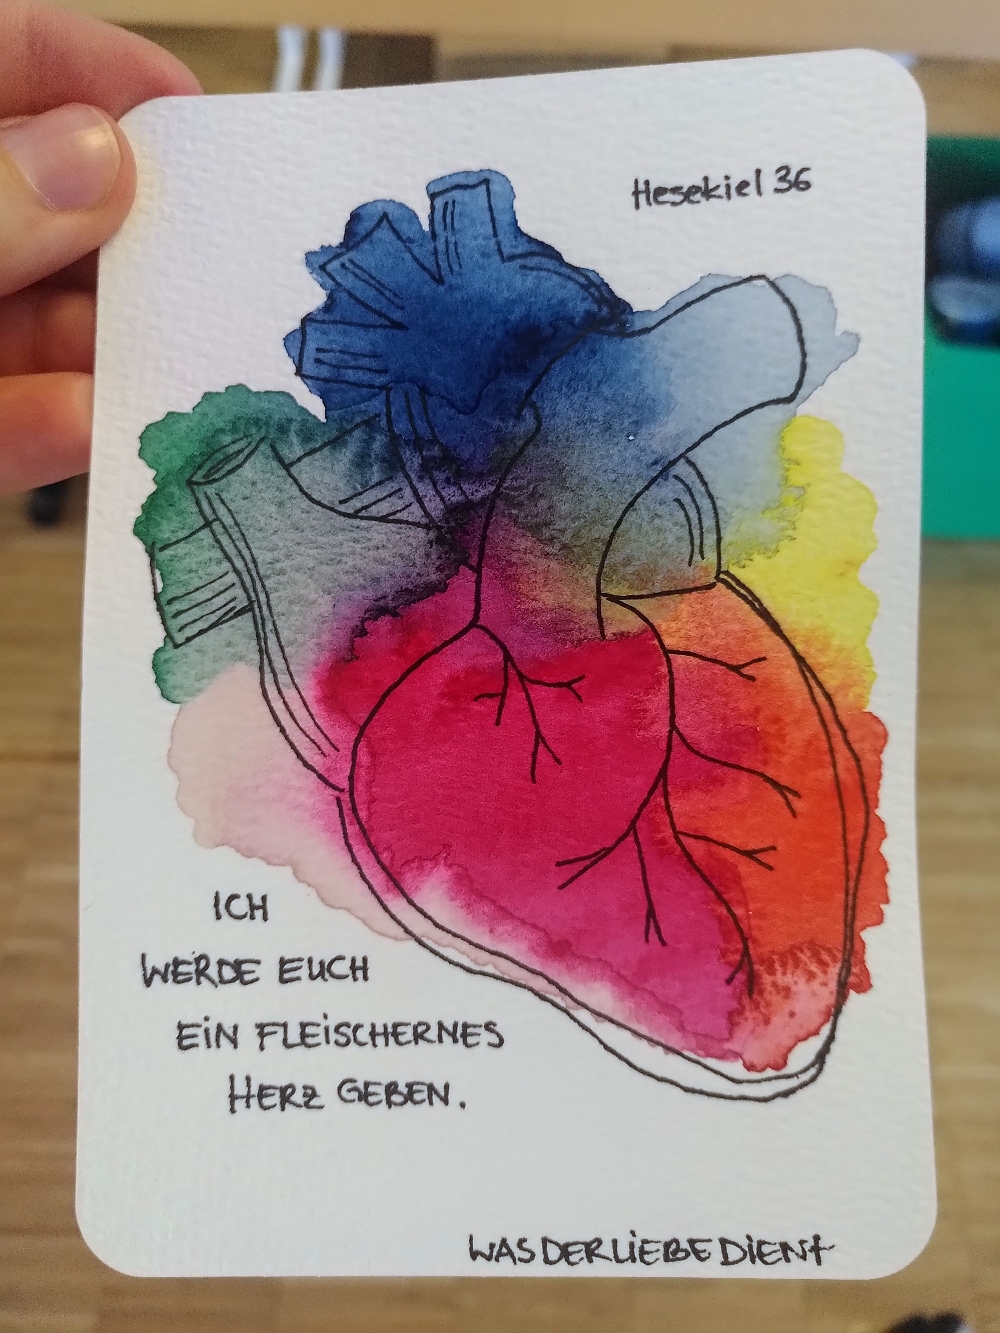 Hesekiel 36
ICH
WERDE EUCH
EIN FLEISCHERNES
HERZ GEBEN.
WASDERLIEBEDIENT